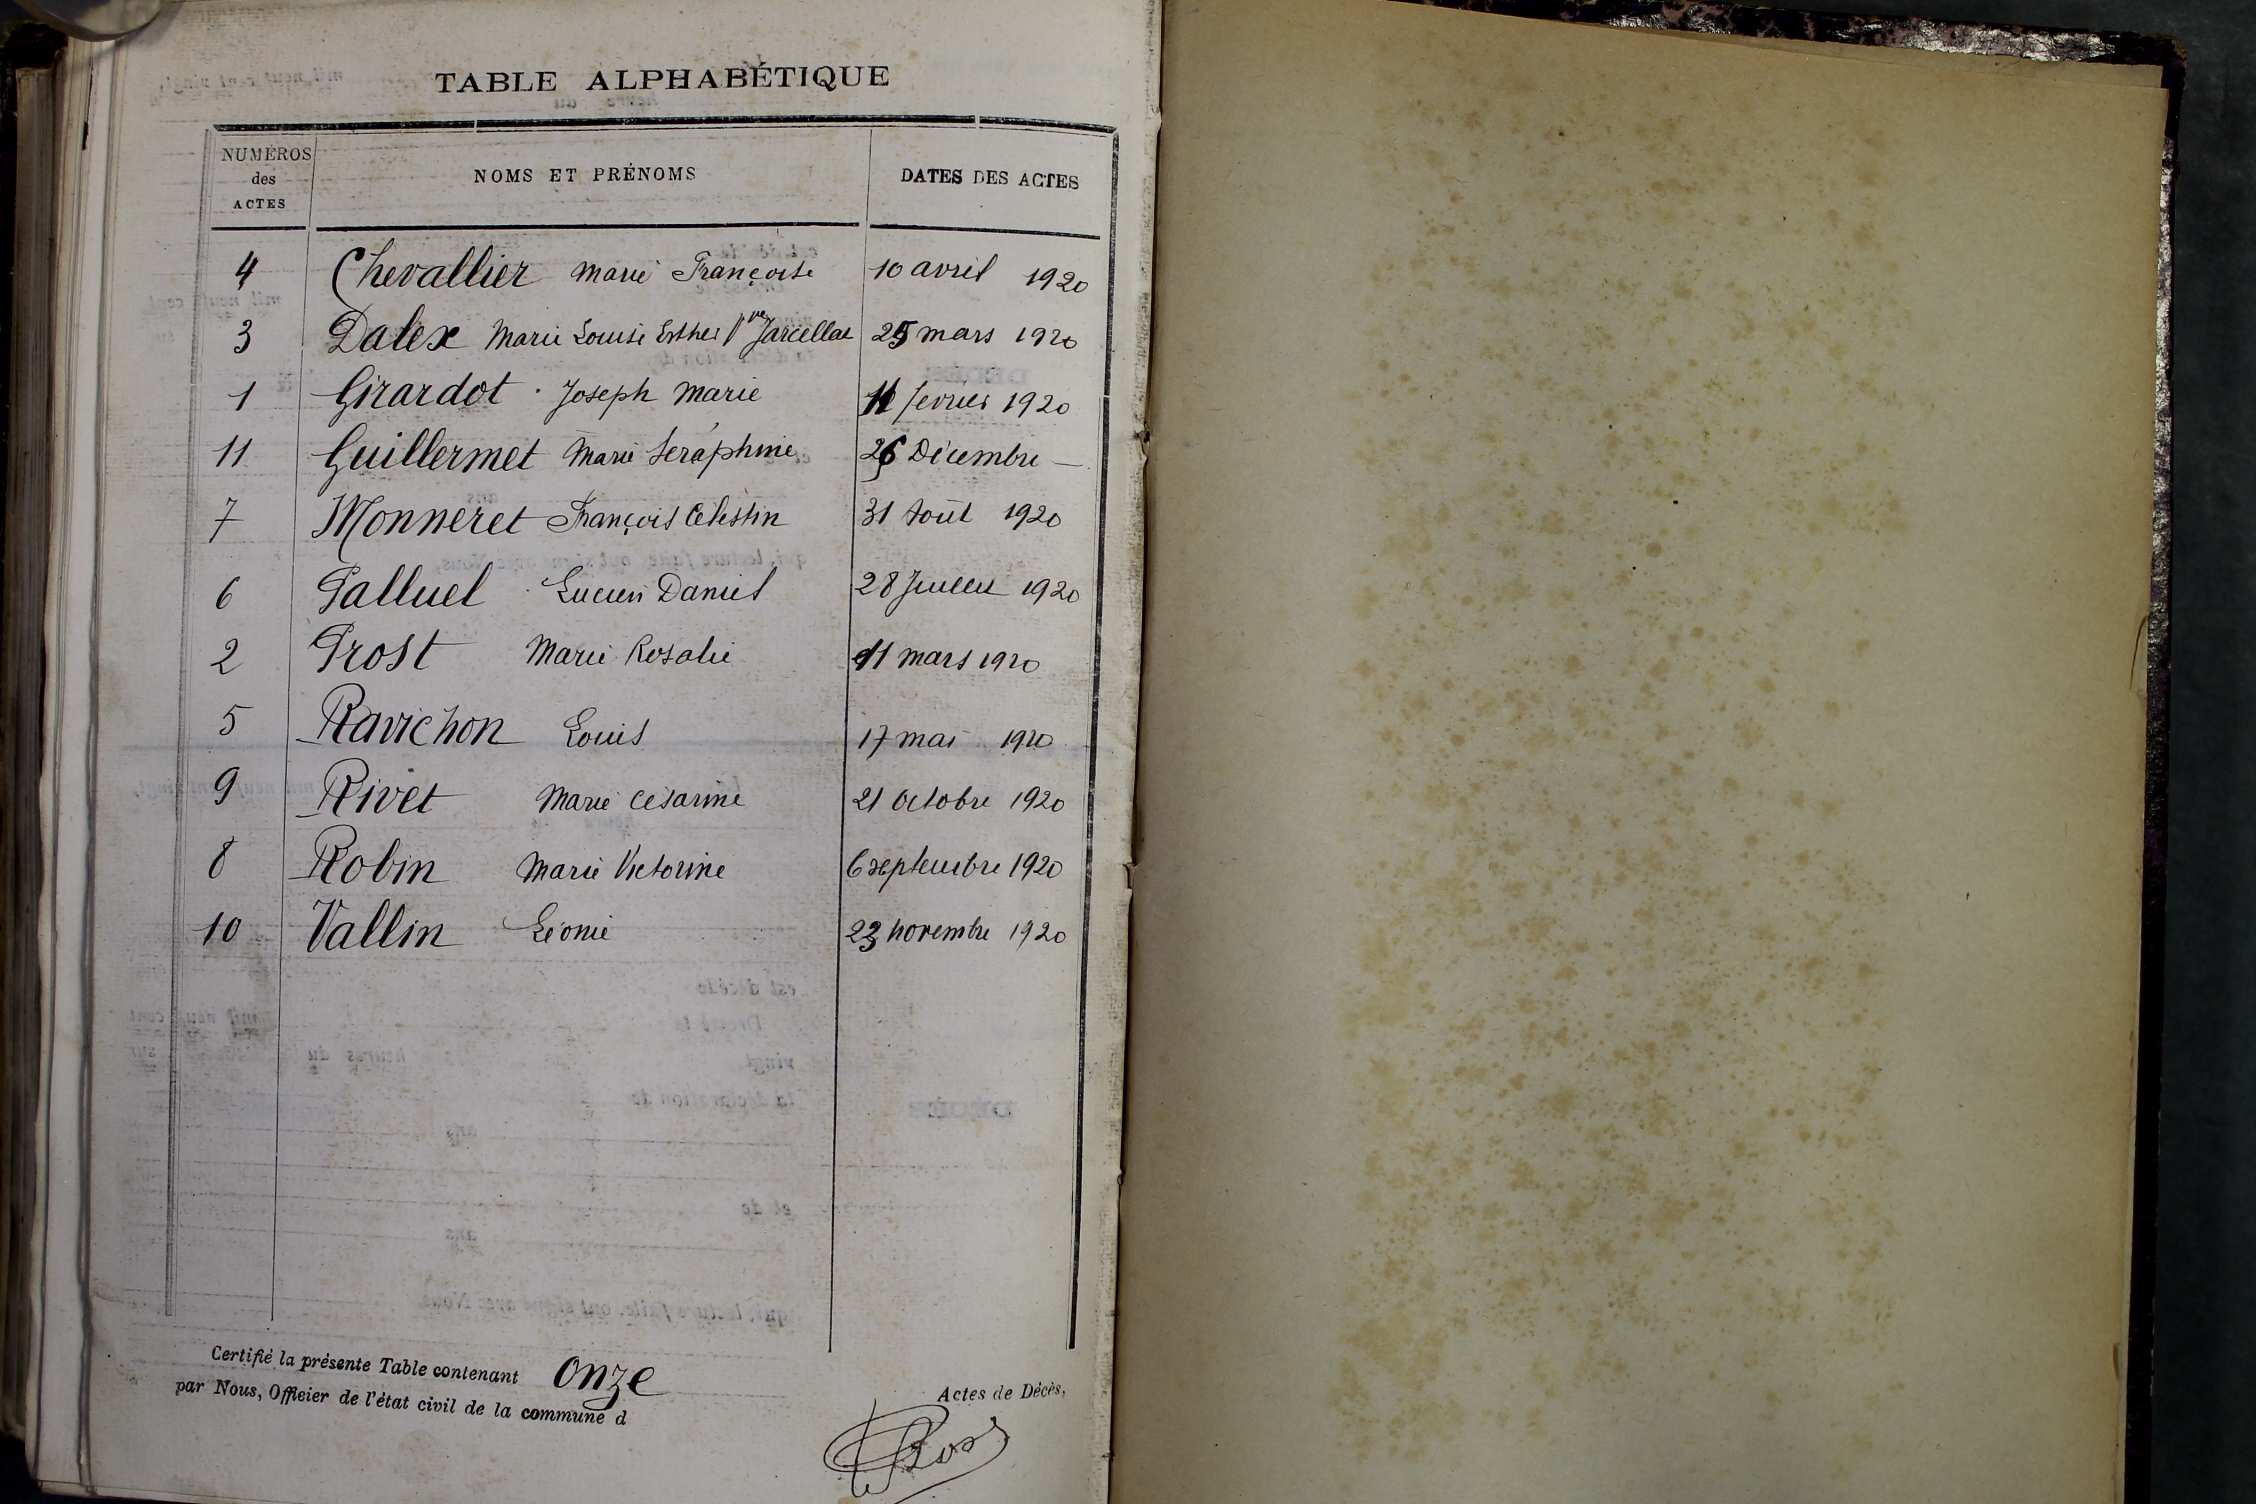 TABLE ALPHABÉTIQUE
NUMÉROS des ACTES NOMS ET PRÉNOMS DATES DES ACTES
4 Chevallier Marie Françoise 10 avril 1920
3 Dalex Marie Louise Esther Vve 25 mars 1920
1 Girardot Joseph Marie 11 fevrier 1920
11 Guillermet Marie Séraphine 26 Décembre —
7 Monneret François Célestin 31 Août 1920
6 Palluel Lucien Daniel 28 Juillet 1920
2 Prost Marie Rosalie 11 mars 1920
5 Ravichon Louis 17 mai 1920
9 Rivet Marie Césarine 21 Octobre 1920
8 Robin Marie Victorine 6 septembre 1920
10 Vallin Léonie 23 novembre 1920
Certifié la présente Table contenant onze Actes de Décès,
par Nous, Officier de l'état civil de la commune d